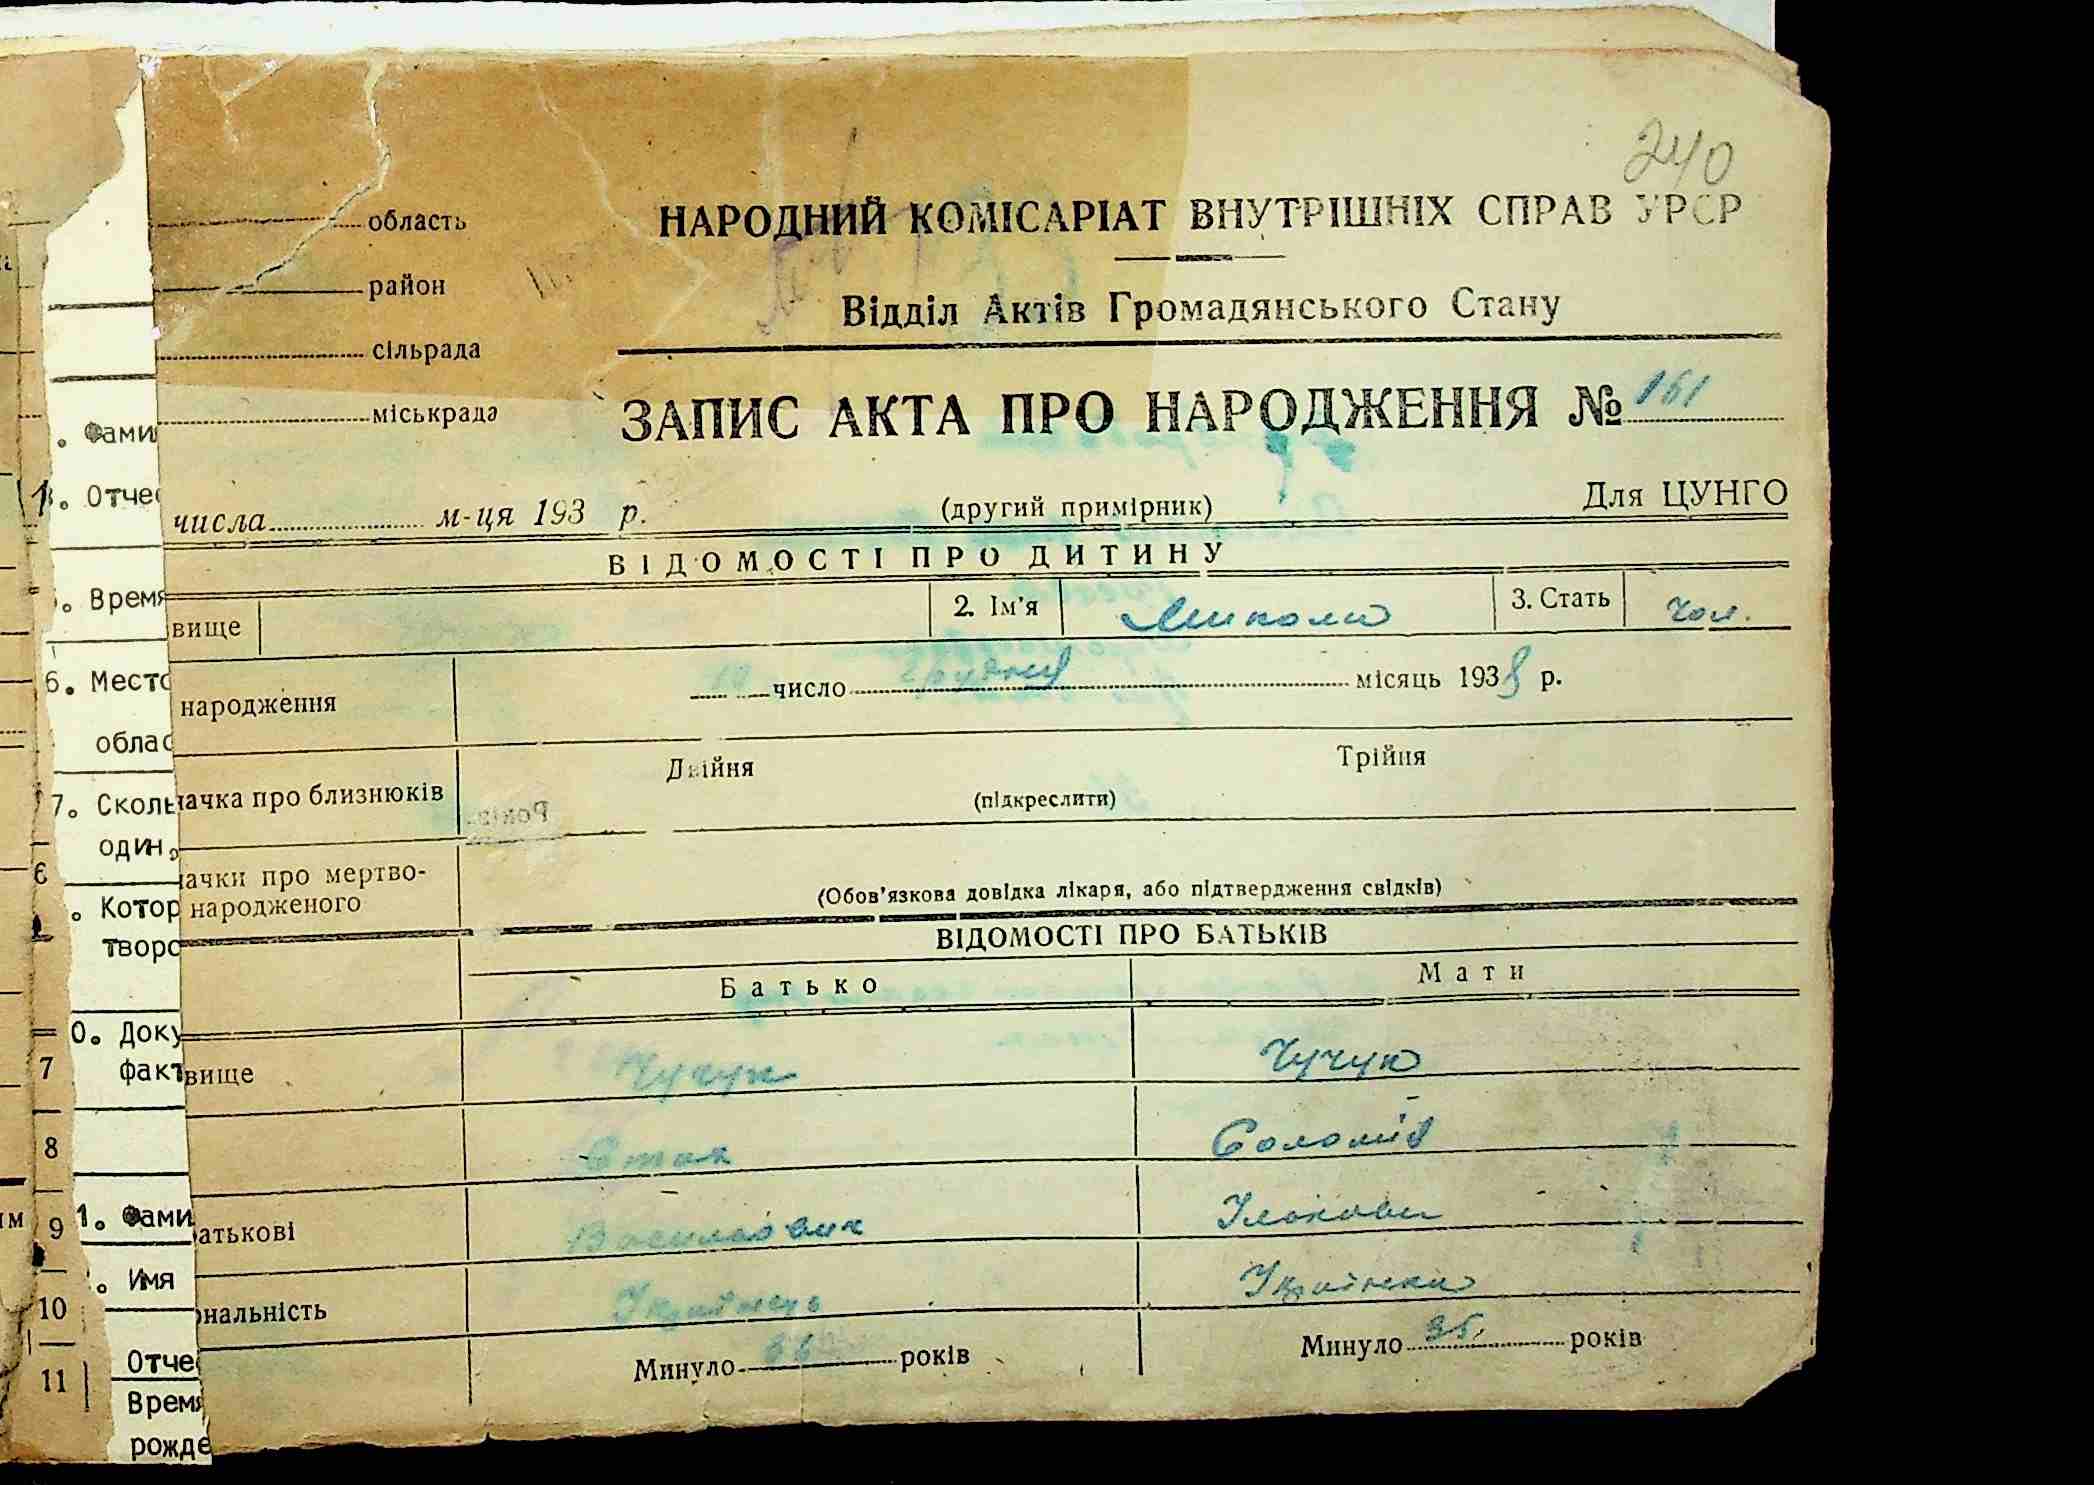 240
область
НАРОДНИЙ КОМІСАРІАТ ВНУТРІШНІХ СПРАВ УРСР
район
Відділ Актів Громадянського Стану
сільрада
міськрада
ЗАПИС АКТА ПРО НАРОДЖЕННЯ № 151
числа м-ця 193 р.
(другий примірник)
Для ЦУНГО
ВІДОМОСТІ ПРО ДИТИНУ
вище
2. Ім'я Микола
3. Стать чол.
народження
10 число грудня місяць 1938 р.
ачка про близнюків
Двійня
Трійня
(підкреслити)
ачки про мертво-
народженого
(Обов'язкова довідка лікаря, або підтвердження свідків)
ВІДОМОСТІ ПРО БАТЬКІВ
Батько
Мати
вище
Чучук
Чучук
Соломія
атькові
Василович
ональність
Українець
Українка
Минуло років
Минуло 35 років
. Фами
. Отчес
. Время
6. Место
облас
7. Сколь
один,
. Котор
творо
0. Доку
факт
1. Фами
. Имя
Отче
Время
рожде
7
8
9
10
11